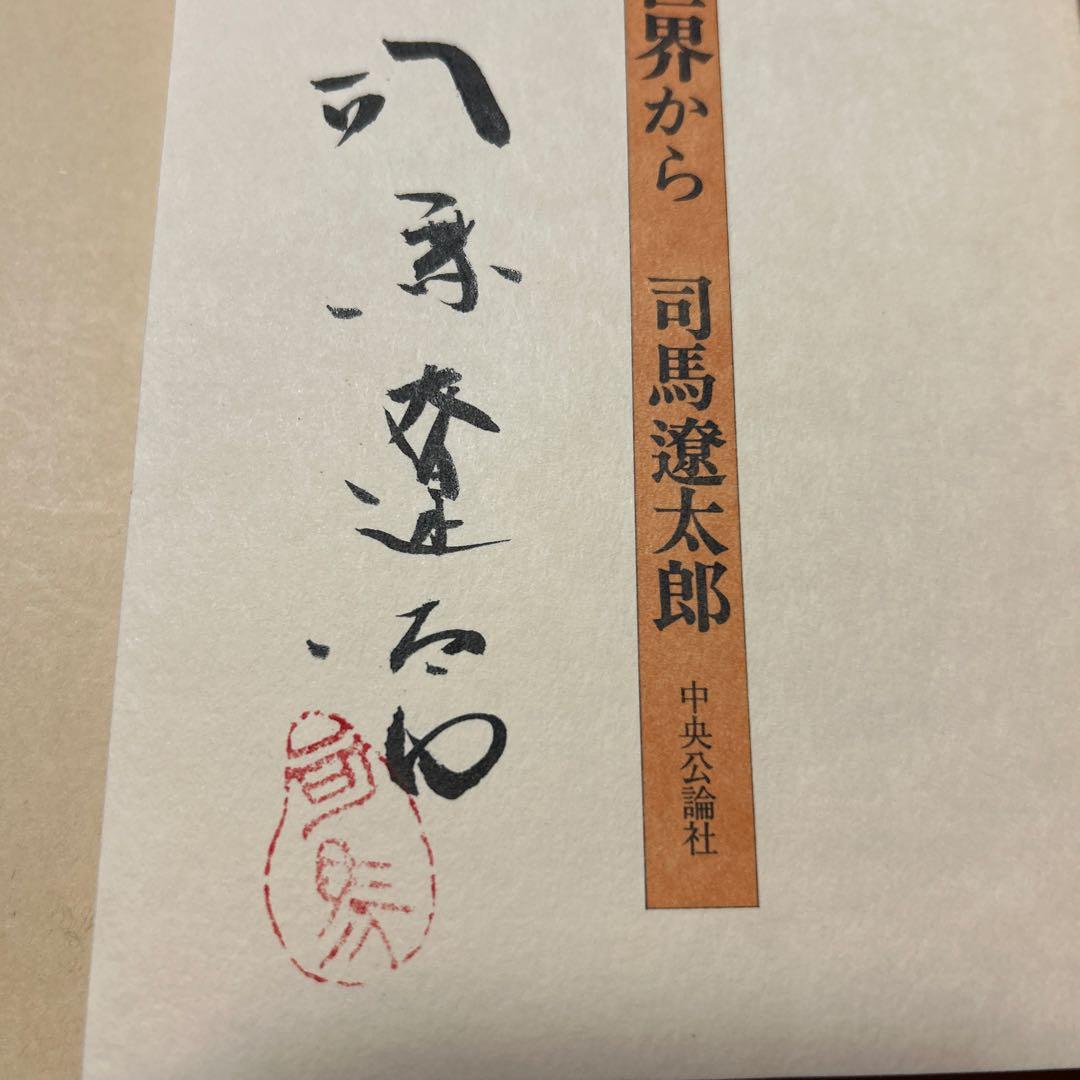 世界から 司馬遼太郎 中央公論社
司馬遼太郎
司馬